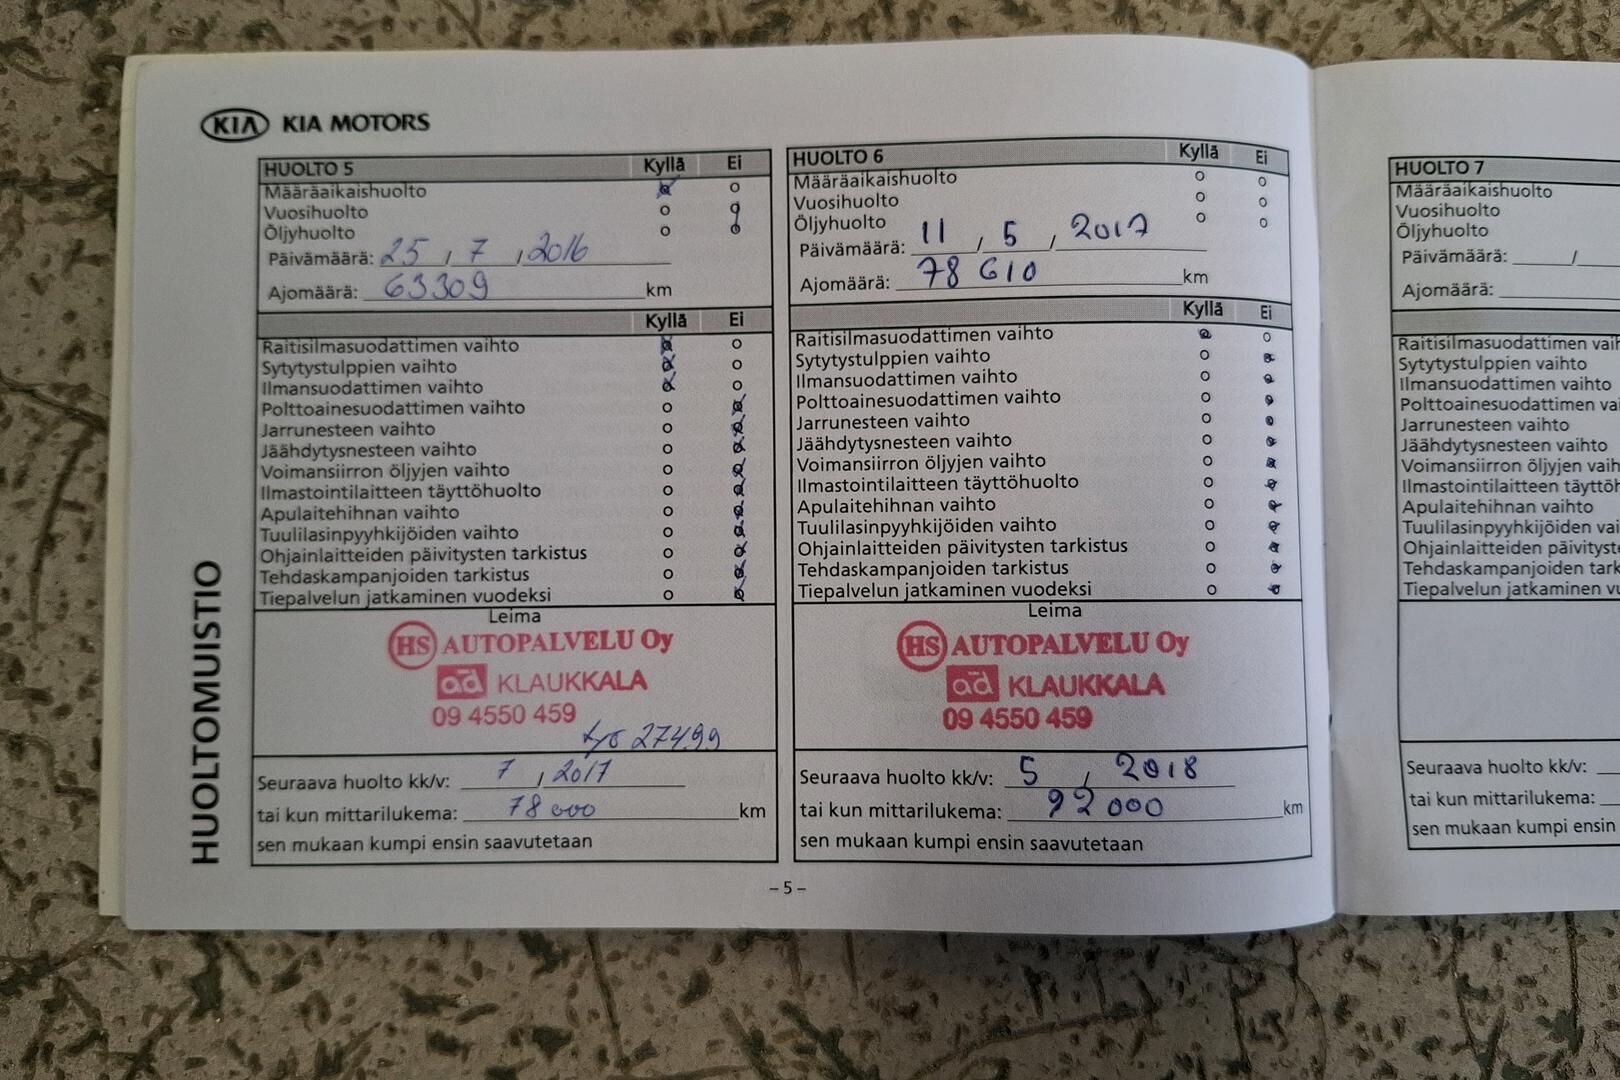 KIA KIA MOTORS
HUOLTOMUISTIO
HUOLTO 5 Kyllä Ei
Määräaikaishuolto
Vuosihuolto
Öljyhuolto
Päivämäärä: 25 / 7 / 2016
Ajomäärä: 63309 km
Kyllä Ei
Raitisilmasuodattimen vaihto
Sytytystulppien vaihto
Ilmansuodattimen vaihto
Polttoainesuodattimen vaihto
Jarrunesteen vaihto
Jäähdytysnesteen vaihto
Voimansiirron öljyjen vaihto
Ilmastointilaitteen täyttöhuolto
Apulaitehihnan vaihto
Tuulilasinpyyhkijöiden vaihto
Ohjainlaitteiden päivitysten tarkistus
Tehdaskampanjoiden tarkistus
Tiepalvelun jatkaminen vuodeksi
Leima
HS AUTOPALVELU Oy
ad KLAUKKALA
09 4550 459
27499
Seuraava huolto kk/v: 7 / 2017
tai kun mittarilukema: 78 000 km
sen mukaan kumpi ensin saavutetaan
HUOLTO 6 Kyllä Ei
Määräaikaishuolto
Vuosihuolto
Öljyhuolto
Päivämäärä: 11 / 5 / 2017
Ajomäärä: 78 610 km
Kyllä Ei
Raitisilmasuodattimen vaihto
Sytytystulppien vaihto
Ilmansuodattimen vaihto
Polttoainesuodattimen vaihto
Jarrunesteen vaihto
Jäähdytysnesteen vaihto
Voimansiirron öljyjen vaihto
Ilmastointilaitteen täyttöhuolto
Apulaitehihnan vaihto
Tuulilasinpyyhkijöiden vaihto
Ohjainlaitteiden päivitysten tarkistus
Tehdaskampanjoiden tarkistus
Tiepalvelun jatkaminen vuodeksi
Leima
HS AUTOPALVELU Oy
ad KLAUKKALA
09 4550 459
Seuraava huolto kk/v: 5 / 2018
tai kun mittarilukema: 92 000 km
sen mukaan kumpi ensin saavutetaan
– 5 –
HUOLTO 7
Määräaikaishuolto
Vuosihuolto
Öljyhuolto
Päivämäärä: /
Ajomäärä:
Raitisilmasuodattimen vaih
Sytytystulppien vaihto
Ilmansuodattimen vaihto
Polttoainesuodattimen va
Jarrunesteen vaihto
Jäähdytysnesteen vaihto
Voimansiirron öljyjen vaih
Ilmastointilaitteen täyttöh
Apulaitehihnan vaihto
Tuulilasinpyyhkijöiden vai
Ohjainlaitteiden päivityste
Tehdaskampanjoiden tark
Tiepalvelun jatkaminen vu
Seuraava huolto kk/v:
tai kun mittarilukema:
sen mukaan kumpi ensin